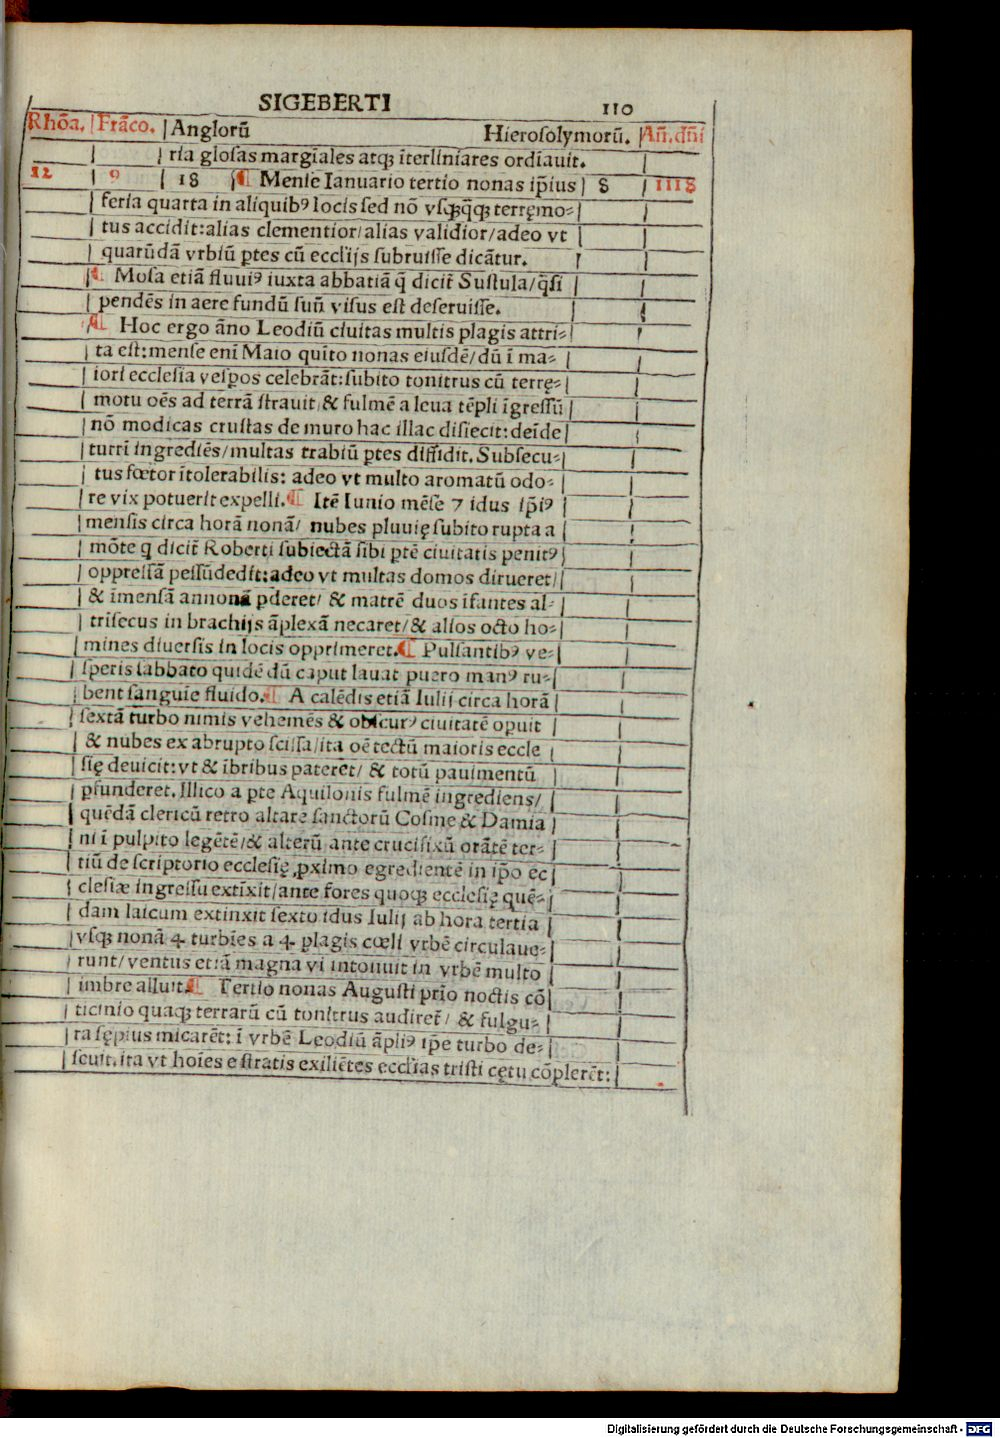 SIGEBERTI 110
Rhōa. Frāco. Anglorū Hierosolymorū. An̄. dn̄i
ria glosas margīales atq; īterliniares ordīauit.
12 9 18 ¶ Mense Ianuario tertio nonas ip̄ius 8 1118
feria quarta in aliquibꝰ locis sed nō vsq;q̄q; terręmo-
tus accidit:alias clementior/alias validior/adeo vt
quarūdā vrbiū ptes cū eccl̄ijs subruisse dicātur.
¶ Mosa etiā fluuiꝰ iuxta abbatiā q̄ dicit̄ Sustula/q̄si
pendēs in aere fundū suū visus est deseruisse.
¶ Hoc ergo āno Leodiū ciuitas multis plagis attri-
ta est:mense enī Maio quīto nonas eiusdē/dū ī ma-
iori ecclesia vesꝑos celebrāt:subito tonitrus cū terrę-
motu oēs ad terrā strauit/& fulmē a leua tēpli īgressū
nō modicas crustas de muro hac illac disiecit:deīde
turrī ingrediēs/multas trabiū ptes diffidit. Subsecu-
tus fœtor ītolerabilis: adeo vt multo aromatū odo-
re vix potuerit expelli. ¶ Itē Iunio mēse 7 idus ip̄iꝰ
mensis circa horā nonā/ nubes pluuię subito rupta a
mōte q dicit̄ Roberti subiectā sibi ptē ciuitatis penitꝰ
oppressā pessūdedit:adeo vt multas domos dirueret/
& īmensā annonā ꝑderet/ & matrē duos īfantes al-
trisecus in brachijs āplexā necaret/& alios octo ho-
mines diuersis in locis opprimeret. ¶ Pulsantibꝰ ve-
speris sabbato quidē dū caput lauat puero manꝰ ru-
bent sanguīe fluido. ¶ A calēdis etiā Iulij circa horā
sextā turbo nimis vehemēs & obscurꝰ ciuitatē oꝑuit
& nubes ex abrupto scissa/ita oē tectū maioris eccle
się deuicit:vt & ībribus paterēt/ & totū pauimentū
ꝑfunderet. Illico a pte Aquilonis fulmē ingrediens/
quēdā clericū retro altare sanctorū Cosme & Damia
ni ī pulpito legētē/& alterū ante crucifixū orātē ter-
tiū de scriptorio ecclesię ꝓximo egredientē in ip̄o ec
clesiæ ingressu extīxit/ante fores quoq; ecclesię quē-
dam laicum extinxit sexto idus Iulij ab hora tertia
vsq; nonā 4. turbīes a 4. plagis cœli vrbē circulaue-
runt/ventus etiā magna vi intonuit in vrbē multo
imbre alluit. ¶ Tertio nonas Augusti prīo noctis cō
ticinio quaq; terrarū cū tonitrus audiret̄/ & fulgu-
ra sępius micarēt: ī vrbē Leodiū āpliꝰ ip̄e turbo de-
seuit. ita vt hoīes e stratis exiliētes eccl̄ias tristi cętu cōplerēt:
Digitalisierung gefördert durch die Deutsche Forschungsgemeinschaft - DFG